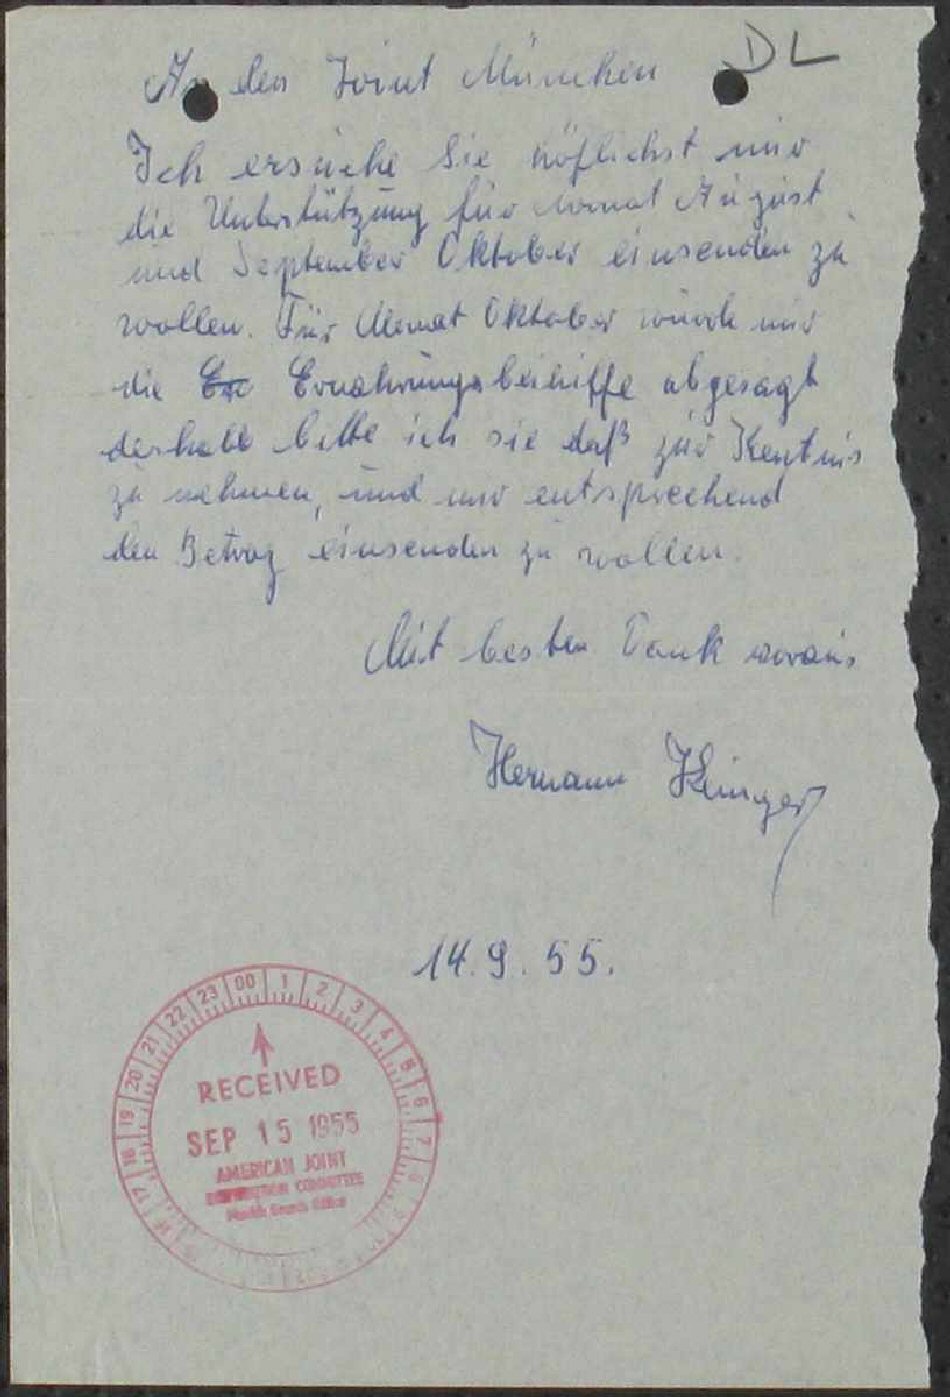 DL
An den Joint München
Ich ersuche Sie höflichst mir
die Unterstützung für Monat August
und September Oktober einsenden zu
wollen. Für Monat Oktober wurde mir
die Ernahrungsbeihilfe abgesagt
deshalb bitte ich sie daß zur Kentnis
zu nehmen, und mir entsprechend
den Betrag einsenden zu wollen.
Mit besten Dank voraus
Hermann
14.9.55.
00 1 2 3 4 5 6 7
17 18 19 20 21 22 23
RECEIVED
SEP 15 1955
AMERICAN JOINT
DISTRIBUTION COMMITTEE
Office